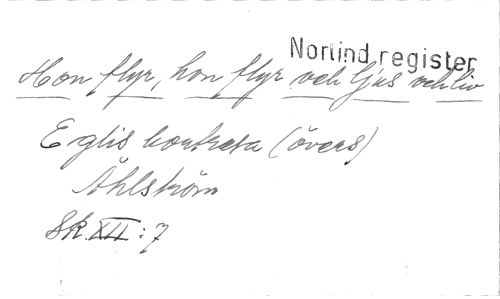 Norlind register
Hon flyr, hon flyr och ljus och liv
Eglis kontreta (övers)
Åhlström
Sk. XII : 7